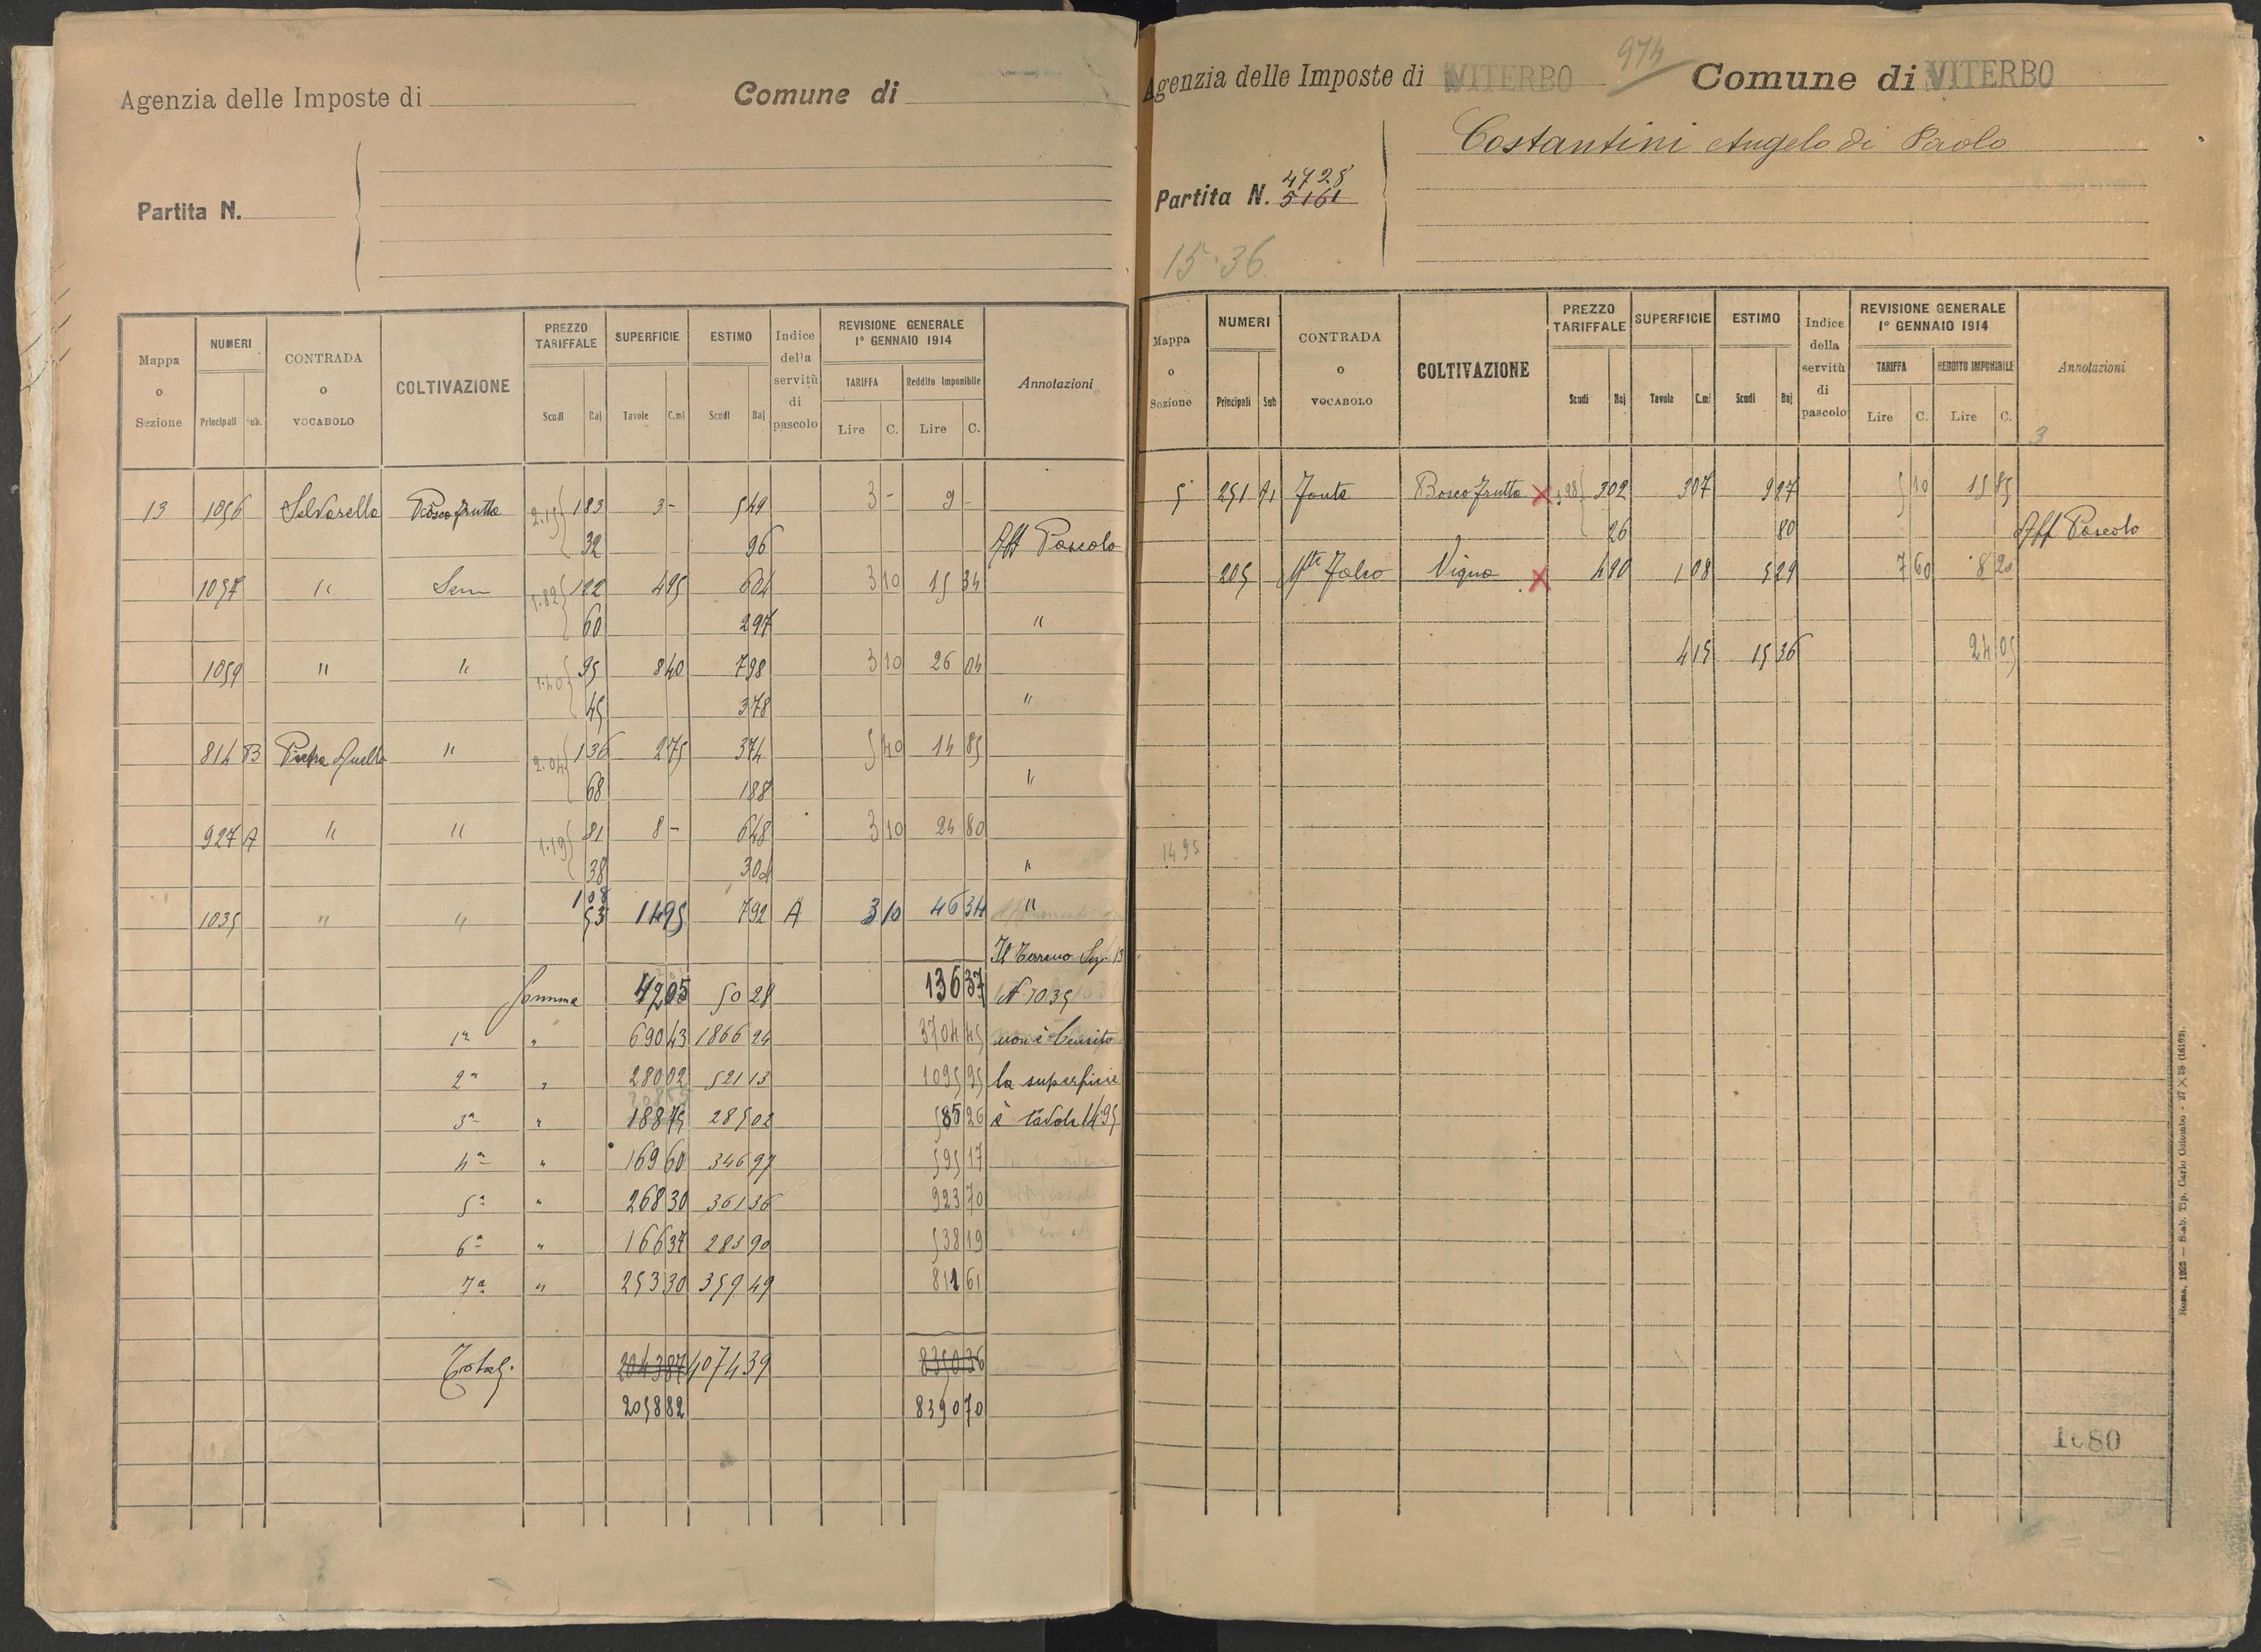 Agenzia delle Imposte di Comune di
Partita N.
Mappa o Sezione NUMERI Principali Sub. CONTRADA o VOCABOLO COLTIVAZIONE PREZZO TARIFFALE Scudi Baj SUPERFICIE Tavole C.mi ESTIMO Scudi Baj Indice della servitù di pascolo REVISIONE GENERALE 1° GENNAIO 1914 TARIFFA Lire C. Reddito Imponibile Lire C. Annotazioni
13 1056 Selvarella Bosco frutta 2.15 183 3 - 549 3 - 9 -
32 96 Aff Pascolo
1057 " Sem 1.82 122 495 604 3 10 15 34
60 297 "
1059 " " 1.40 95 840 798 3 10 26 04
45 378 "
814 B Pietra Quella " 2.04 136 275 374 5 40 14 85
68 188 "
927 A " " 1.19 81 8 - 648 3 10 24 80
38 304 "
108
1035 " " 53 1495 792 A 3 10 46 34 "
Il Terreno Sez 13
Somma 4205 50 28 136 37 N 1035
1a " 690 43 1866 24 3704 45 non è Censito
2a " 280 02 521 13 1095 95 la superficie
3a " 188 75 285 02 585 26 è tavole 14.95
4a " 169 60 346 97 595 17
5a " 268 30 361 36 923 70
6a " 166 37 283 90 538 19
7a " 253 30 359 49 811 61
Total. 2043 87 4074 39 8350 36
2058 82 8390 70
974
Agenzia delle Imposte di VITERBO Comune di VITERBO
Costantini Angelo di Paolo
4728
Partita N. 5161
15.36
Mappa o Sezione NUMERI Principali Sub CONTRADA o VOCABOLO COLTIVAZIONE PREZZO TARIFFALE Scudi Baj SUPERFICIE Tavole C.mi ESTIMO Scudi Baj Indice della servitù di pascolo REVISIONE GENERALE 1° GENNAIO 1914 TARIFFA Lire C. REDDITO IMPONIBILE Lire C. Annotazioni
3
5 251 Fonte Bosco frutta 302 307 927 5 10 15 85
26 80 Aff Pascolo
205 Mte Falco Vigna 490 108 529 7 60 8 20
4 15 15 36 24 05
1495
1080
Roma, 1923 — Stab. Tip. Carlo Colombo - 27 × 38 (16193).